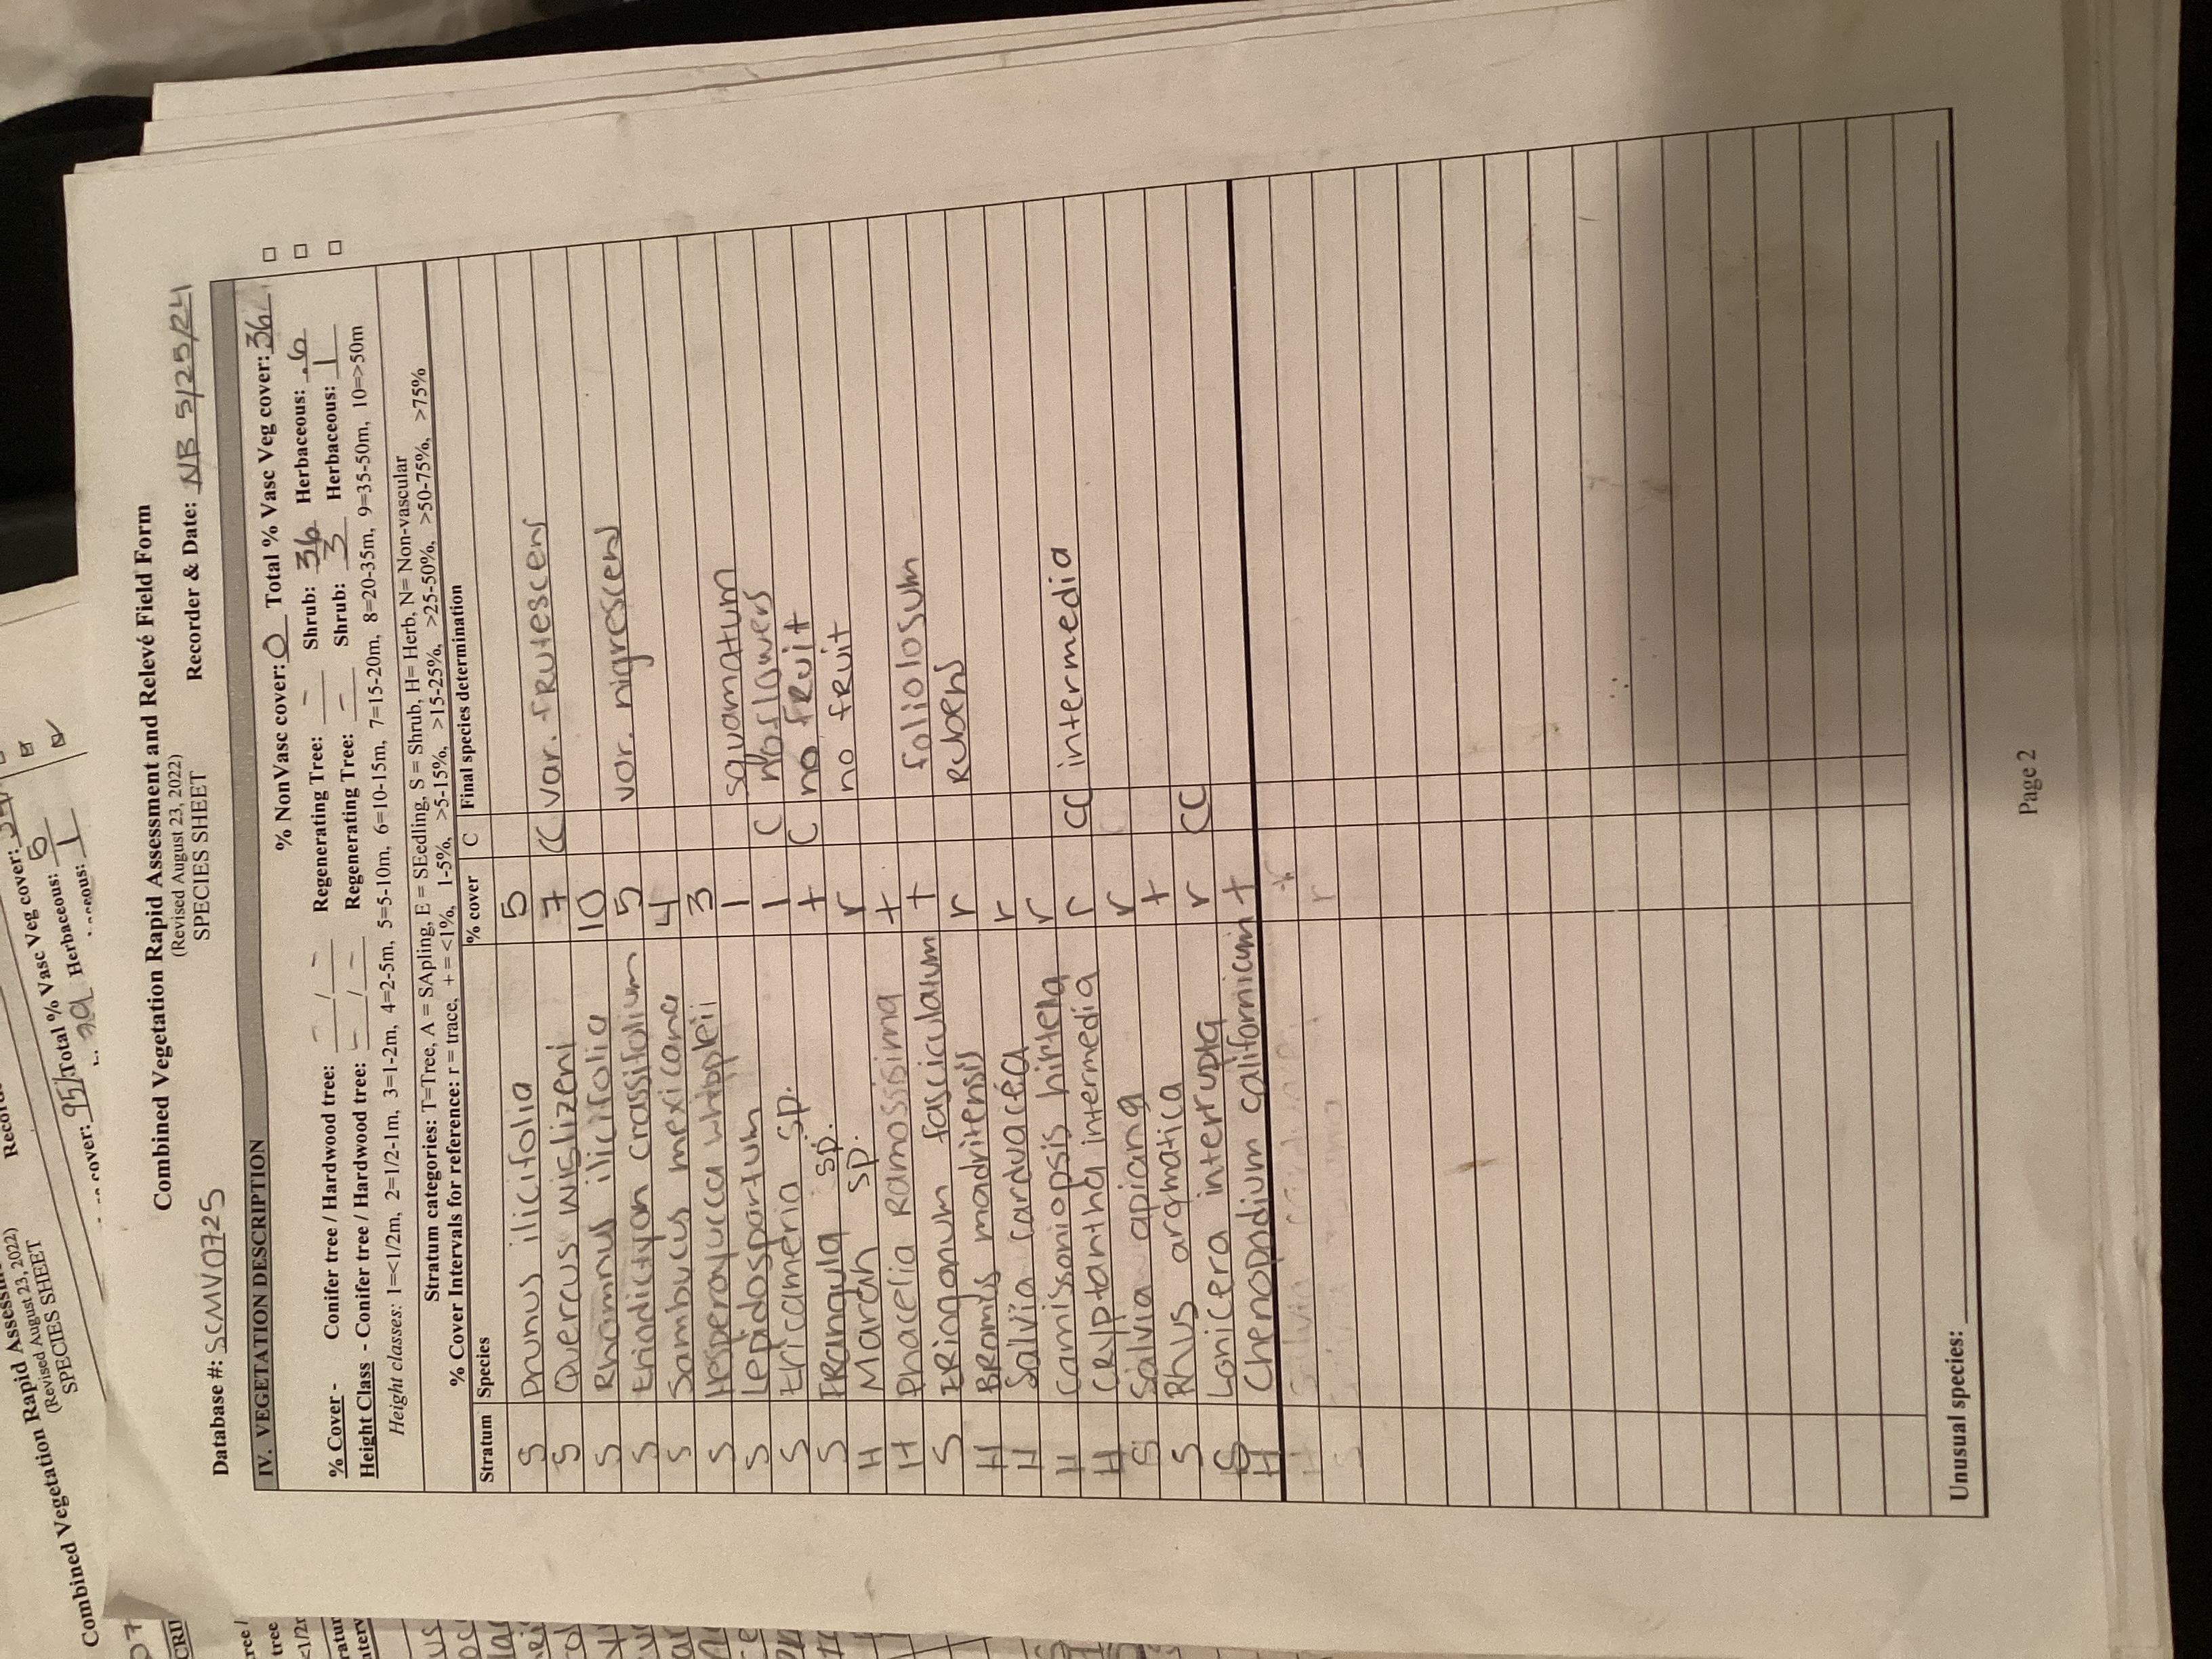 Combined Vegetation Rapid Assessment and Relevé Field Form
(Revised August 23, 2022)
SPECIES SHEET
Database #: SCMV0725 Recorder & Date: NB 5/25/24
IV. VEGETATION DESCRIPTION
% NonVasc cover: 0 Total % Vasc Veg cover: 36
% Cover - Conifer tree / Hardwood tree: - / - Regenerating Tree: - Shrub: 36 Herbaceous: .6
Height Class - Conifer tree / Hardwood tree: - / - Regenerating Tree: - Shrub: 3 Herbaceous: 1
Height classes: 1=<1/2m, 2=1/2-1m, 3=1-2m, 4=2-5m, 5=5-10m, 6=10-15m, 7=15-20m, 8=20-35m, 9=35-50m, 10=>50m
Stratum categories: T=Tree, A = SApling, E = SEedling, S = Shrub, H= Herb, N= Non-vascular
% Cover Intervals for reference: r = trace, + = <1%, 1-5%, >5-15%, >15-25%, >25-50%, >50-75%, >75%
Stratum Species % cover C Final species determination
S Prunus ilicifolia 5
S Quercus wislizeni 7 C var. frutescens
S Rhamnus ilicifolia 10
S Eriodictyon crassifolium 5 var. nigrescens
S Sambucus mexicana 4
S Hesperoyucca whipplei 3
S Lepidospartum 1 squamatum
S Ericameria sp. 1 C no flowers
S Frangula sp. + C no fruit
H Marah sp. r no fruit
H Phacelia ramosissima +
S Eriogonum fasciculatum + foliolosum
H Bromus madritensis r rubens
H Salvia carduacea r
H Camissoniopsis hirtella r
H Cryptantha intermedia r CC intermedia
S Salvia apiana r
S Rhus aromatica +
S Lonicera interrupta r CC
H Chenopodium californicum +
H Salvia r
S r
Unusual species:
Page 2
Combined Vegetation Rapid Assessme
(Revised August 23, 2022)
SPECIES SHEET
cover: 95 Total % Vasc Veg cover: 5
Herbaceous: 1